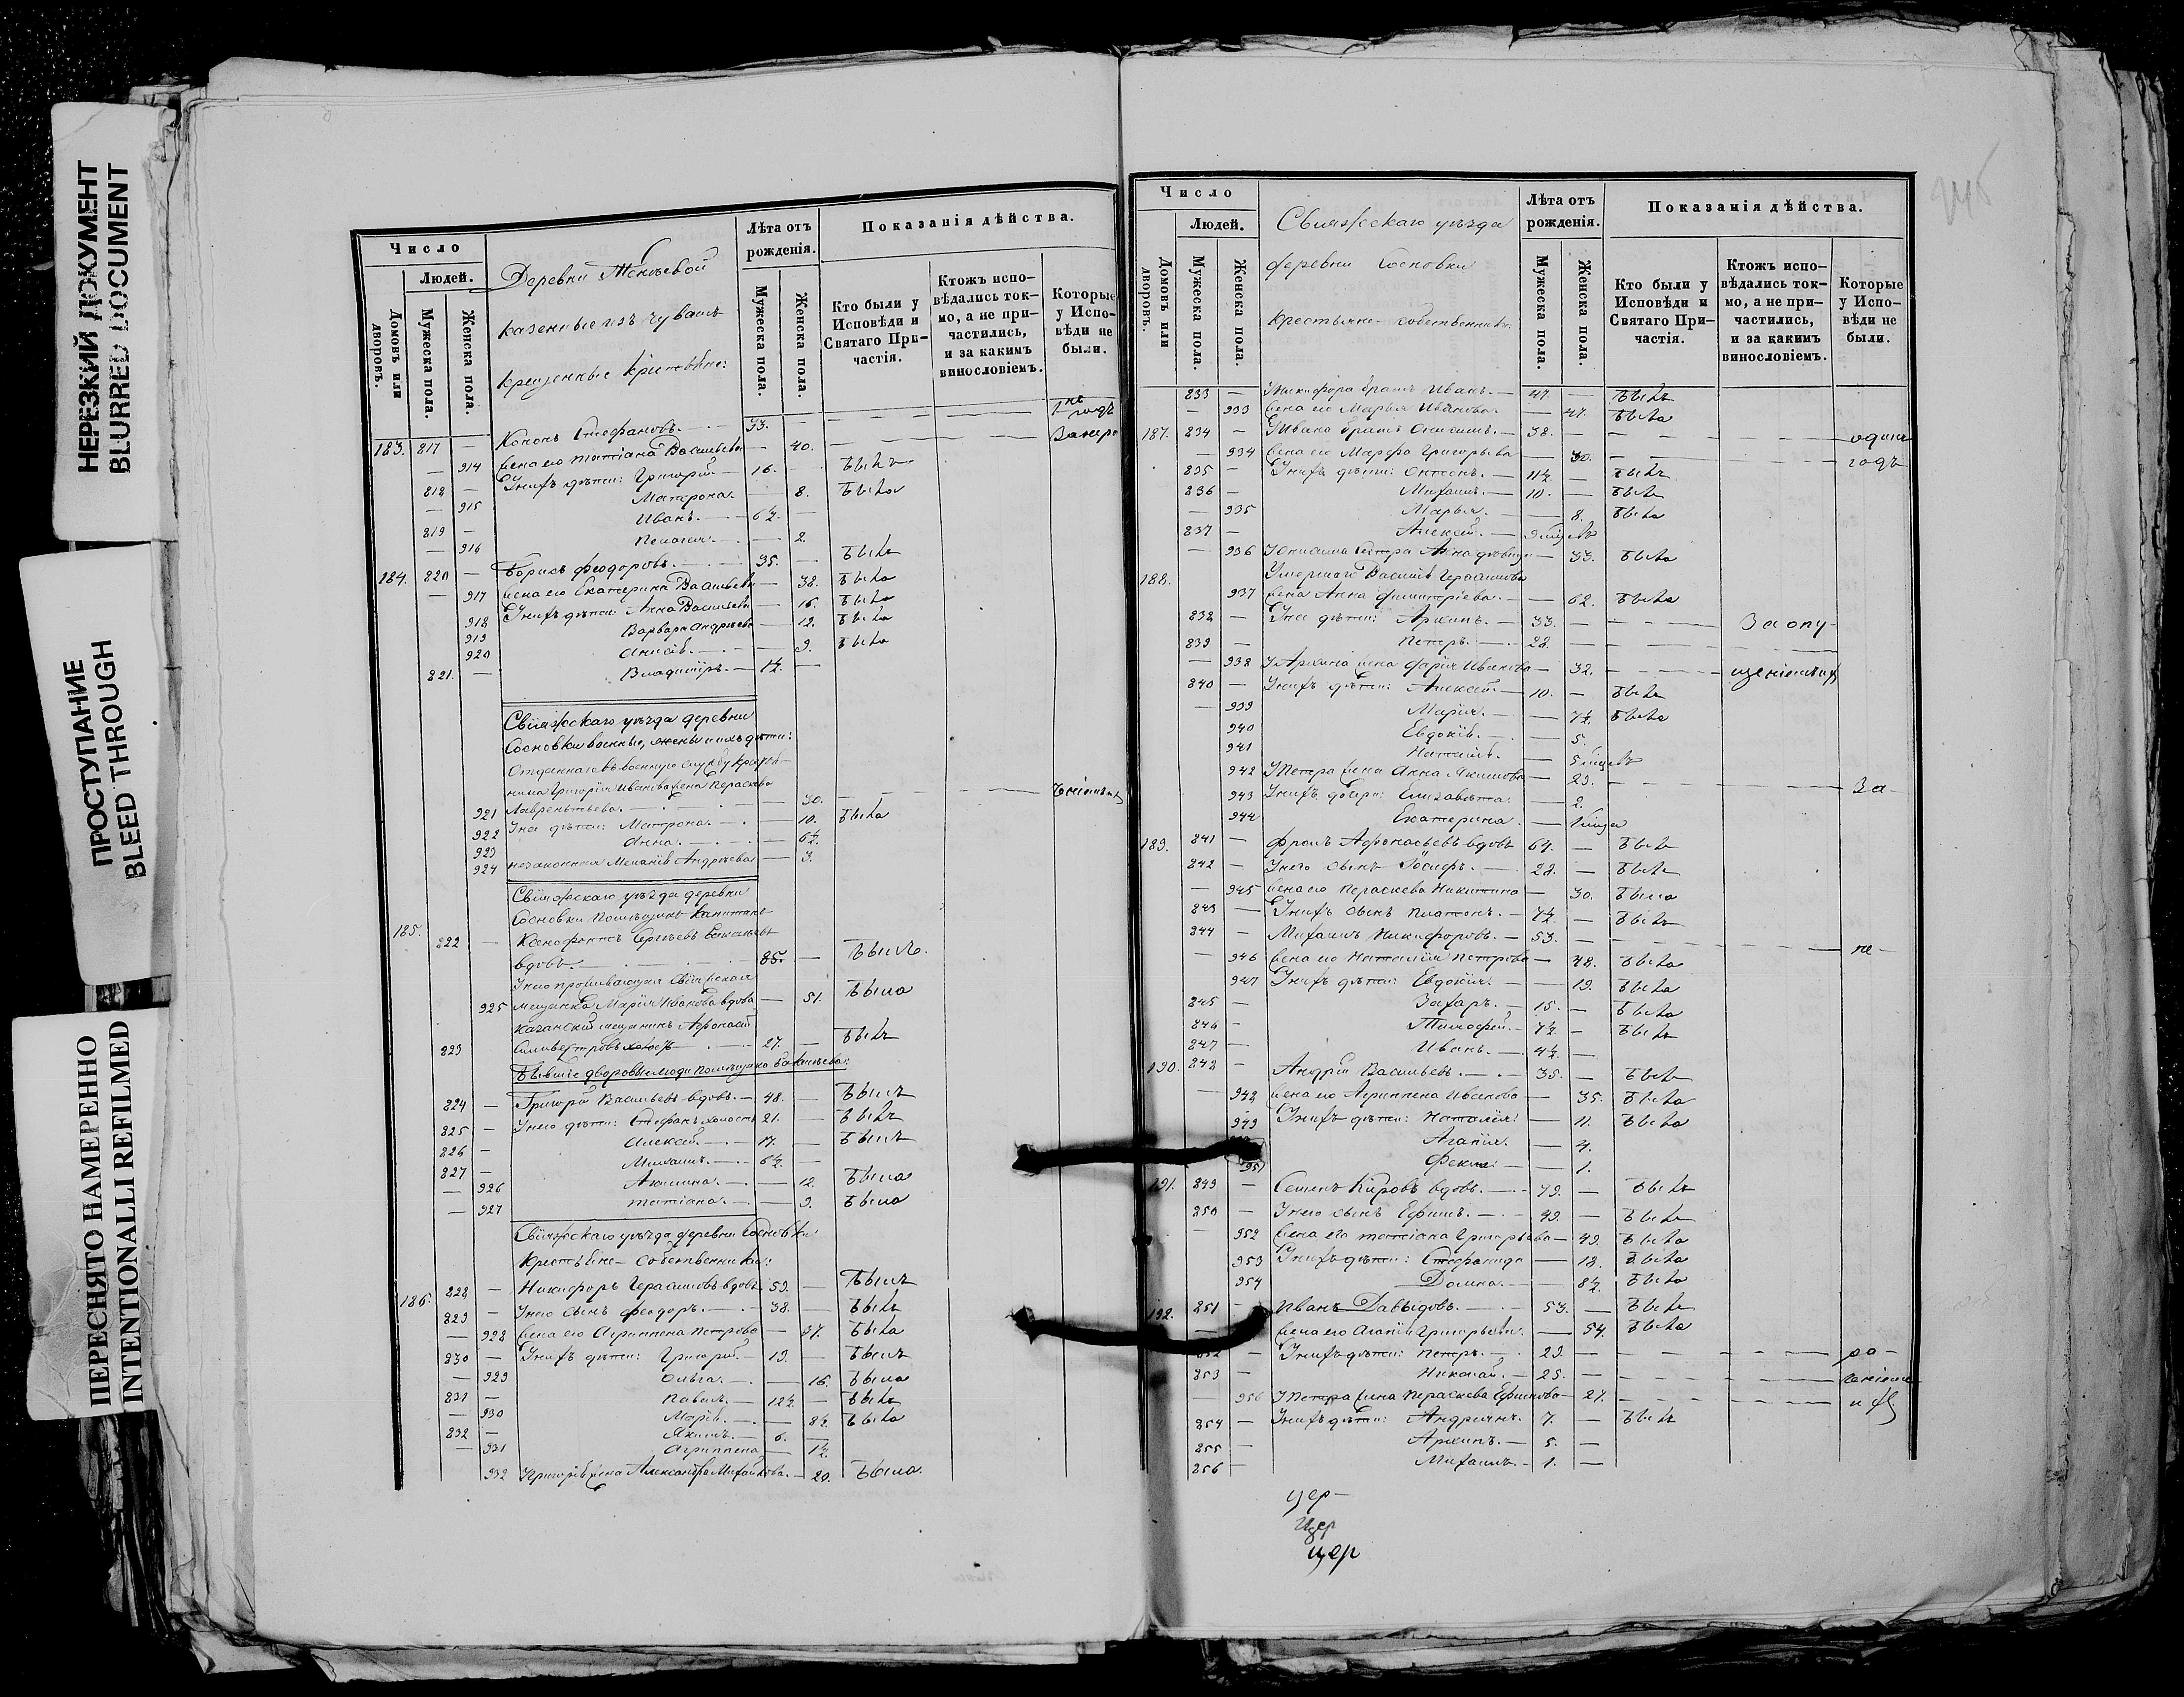 НЕРЕЗКИЙ ДОКУМЕНТ
BLURRED DOCUMENT
ПРОСТУПАНИЕ
BLEED THROUGH
ПЕРЕСНЯТО НАМЕРЕННО
INTENTIONALLI REFILMED
Число
Людей.
Домовъ или дворовъ.
Мужеска пола.
Женска пола.
Деревни
казенные изъ чувашъ
крещенные
Лѣта отъ рожденія.
Мужеска пола.
Женска пола.
Показанія дѣйства.
Кто были у Исповѣди и Святаго Причастія.
Ктожъ исповѣдались токмо, а не причастились, и за какимъ винословіемъ.
Которые у Исповѣди не были.
183. 817 — Кононъ Стефановъ. — 43. —
— 914 жена его Татіана Васильева — 40.
818 — У нихъ дѣти: Григорій — 16. Былъ
— 915 Матрона. — 8. Была
819 — Иванъ. — 6½. —
— 916 Пелагія. — 2.
184. 820 — Борисъ Феодоровъ. — 35. — Былъ
— 917 жена его Екатерина Васильева — 38. Была
918 У нихъ дѣти: Анна Васильева — 16. Была
919 Варвара Андреева — 12. Была
920 Анисія. — 9. Была
821. — Владиміръ. — 1½. —
Свіяжскаго уѣзда деревни
Сосновки военные, жены и ихъ дѣти:
Отданнаго въ военную службу
Григорія Иванова жена Параскева
921 Лаврентьева. — 30.
922 У нея дѣти: Матрона. — 10. Была
923 Анна. — 6½.
924 незаконная Меланія Андреева — 3.
Свіяжскаго уѣзда деревни
Сосновки помѣщикъ Капитанъ
185. 822 — Ксенофонтъ Сергѣевъ
вдовъ. — 85. — Былъ.
У него проживающая Свіяжская
925 мещанка Марія Иванова вдова — 51. Была
казанскій мещанинъ Афанасій
823 Силивестровъ холостъ — 27. — Былъ
Бывшіе дворовые люди помѣщика
824 — Григорій Васильевъ вдовъ. — 48. — Былъ
825 — У него дѣти: Стефанъ холостъ 21. — Былъ
826 — Алексей. — 17. — Былъ
827 — Михаилъ. — 6½. —
— 926 Акилина. — 12. Была
— 927 Татіана. — 9. Была
Свіяжскаго уѣзда деревни Сосновки
Крестьяне-собственники:
186. 828 — Никифоръ Герасимовъ вдовъ 59. — Былъ
829 — У него сынъ Феодоръ. — 38. — Былъ
— 928 жена его Агриппена Петрова — 37. Была
830 — У нихъ дѣти: Григорій — 19. — Былъ
— 929 Ольга. — 16. Была
831 — Павелъ. — 12½. — Былъ
— 930 Марія. — 8½. Была
832 — Якимъ. — 6. —
— 931 Агриппена — 1½.
932 У Григорія жена Александра Михайлова. — 20. Была.
Число
Людей.
Домовъ или дворовъ.
Мужеска пола.
Женска пола.
Свіяжскаго уѣзда
деревни Сосновки
крестьяне-собственники:
Лѣта отъ рожденія.
Мужеска пола.
Женска пола.
Показанія дѣйства.
Кто были у Исповѣди и Святаго Причастія.
Ктожъ исповѣдались токмо, а не причастились, и за какимъ винословіемъ.
Которые у Исповѣди не были.
833 — Никифора братъ Иванъ. — 47. — Былъ
— 933 жена его Марья Иванова. — 47. Была
187. 834 — У Ивана братъ Онисимъ. — 38. — одинъ
— 934 жена его Марфа Григорьева — 30. — годъ
835 — У нихъ дѣти: Антонъ. — 11½. — Былъ
836 — Михаилъ. — 10. — Былъ
— 935 Марья. — 8. Была
837 — Алексей. — 9 мцевъ
— 936 У Онисима сестра Анна девица — 33. Была
188. Умершаго Василія Герасимова
937 жена Анна Димитріева. — 62. Была
838 — У нея дѣти: Архипъ. — 33. — За опу-
839 — Петръ. — 28.
— 938 У Архипа жена Дарія Иванова — 32. —
840 — У нихъ дѣти: Алексей. — 10. — Былъ
— 939 Марія. — 7½. Была
940 Евдокія. — 5.
941 Наталія. — 5 мцевъ
942 У Петра жена Анна Якимова — 23. — За-
943 У нихъ дочери: Елизавета. — 2.
944 Екатерина. —
189. 841 — Фролъ Афонасьевъ вдовъ 64. — Былъ
842 — У него сынъ Іосифъ. — 28. — Былъ
— 945 жена его Параскева Никитина — 30. Была
843 — У нихъ сынъ Платонъ. — 7½. — Былъ
844 — Михаилъ Никифоровъ. — 53. — не-
— 946 жена его Наталія Петрова — 48. Была
947 У нихъ дѣти: Евдокія. — 19. Была
845 — Захаръ. — 15. — Была
846 — Тимофей. — 7½. — Былъ
847 — Иванъ. — 4½. —
190. 848 — Андрей Васильевъ. — 35. — Былъ
— 948 жена его Агриппена Иванова — 35. Была
949 У нихъ дѣти: Наталія: — 11. Была
Агапія. — 4.
951 Фекла: — 1.
191. 849 — Семенъ Кировъ вдовъ. — 79. — Былъ
850 — У него сынъ Ефимъ. — 49. — Былъ
— 952 жена его Татіана Григорьева — 49. Была
953 У нихъ дѣти: Стефанида — 18. Была
954 Домна. — 8½. Была
192. 851 — Иванъ Давыдовъ. — 53. — Былъ
жена его Агапія Григорьева. — 54. Была
852 — У нихъ дѣти: Петръ. — 29. —
853 — Николай. — 25. —
956 У Петра жена Параскева Ефимова — 27. —
854 — У нихъ дѣти: Андріянъ. — 7. — Былъ
855 — Архипъ. — 5. —
856 — Михаилъ. — 1. —
цер-
цер
цер